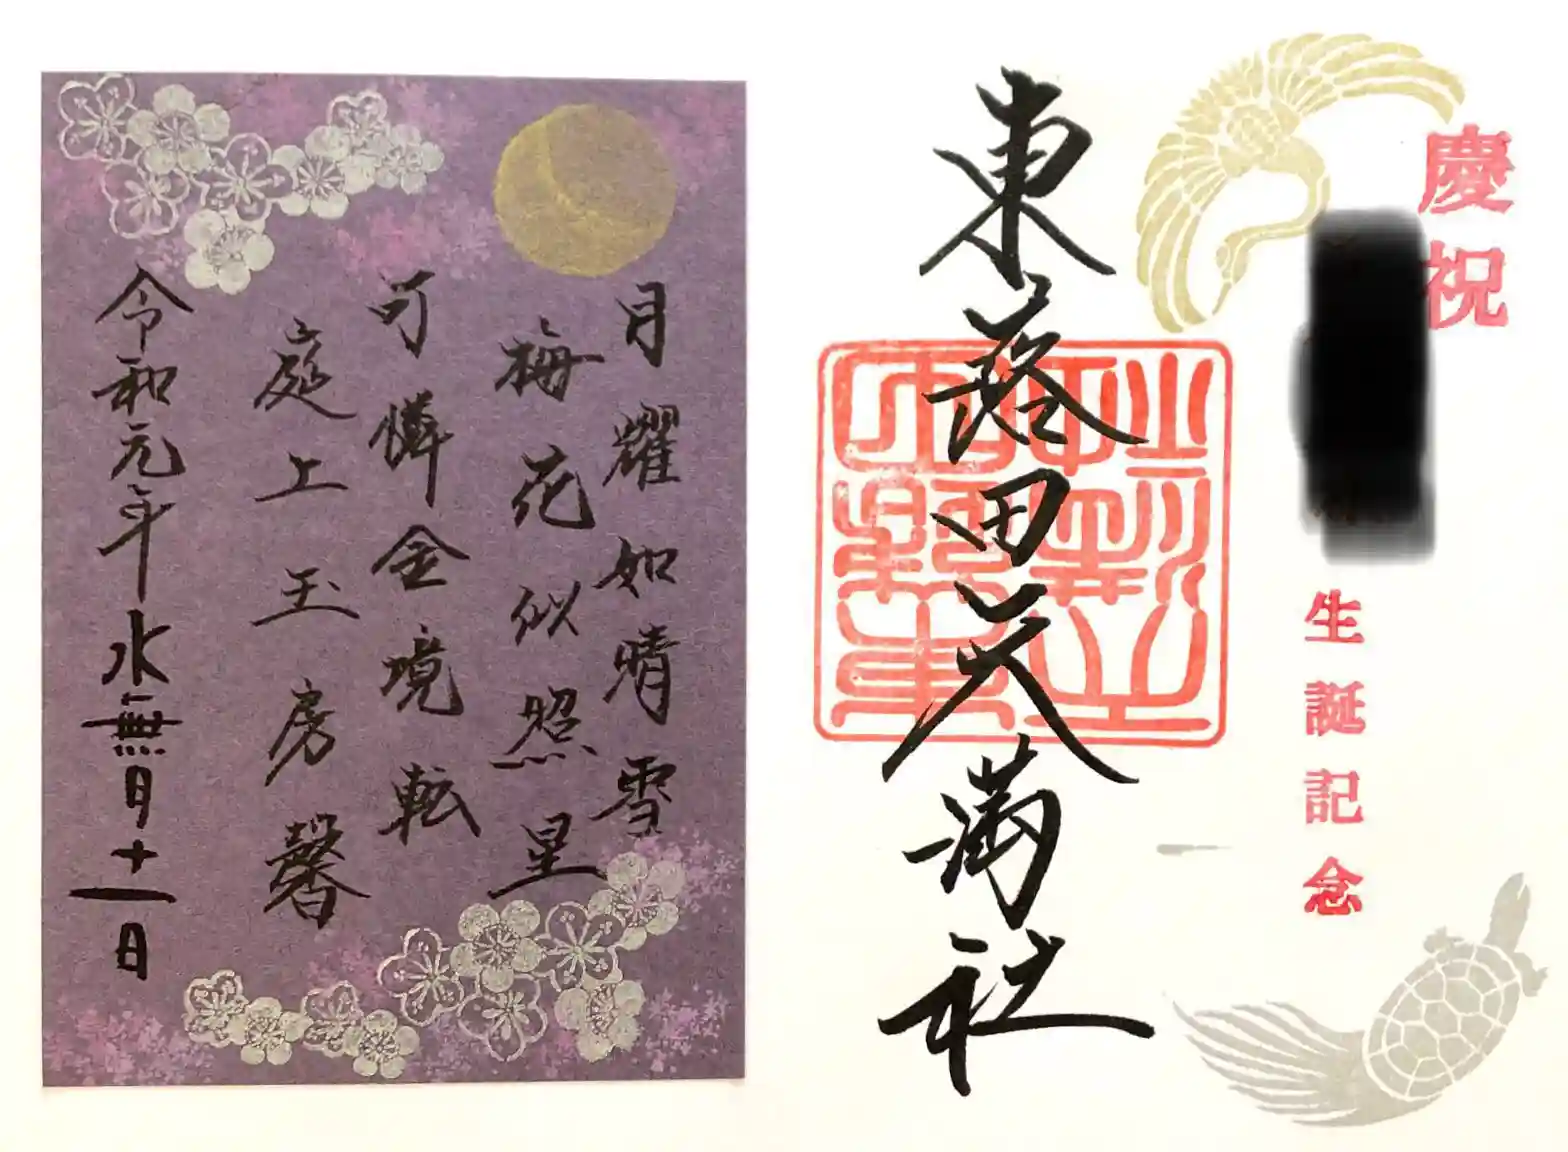 慶祝
生誕記念
東蕗田天満社
月耀如晴雪
梅花似照星
可憐金境転
庭上玉房馨
令和元年水無月十一日